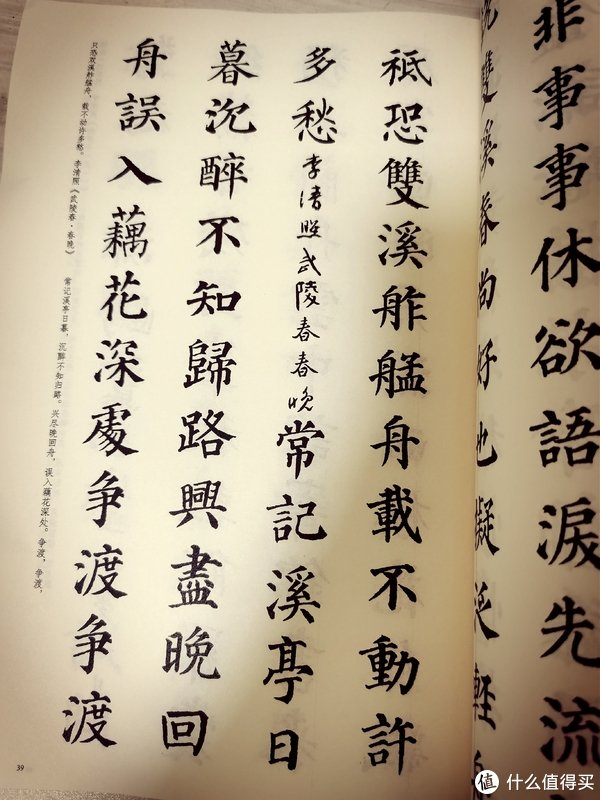 非事事休欲語淚先流
雙溪春尚好也擬泛輕
祗恐雙溪舴艋舟載不動許
多愁李清照武陵春春晚常記溪亭日
暮沉醉不知歸路興盡晚回
舟誤入藕花深處爭渡爭渡
只恐双溪舴艋舟，载不动许多愁。李清照《武陵春·春晚》
常记溪亭日暮，沉醉不知归路。兴尽晚回舟，误入藕花深处。争渡，争渡，
39
值 什么值得买